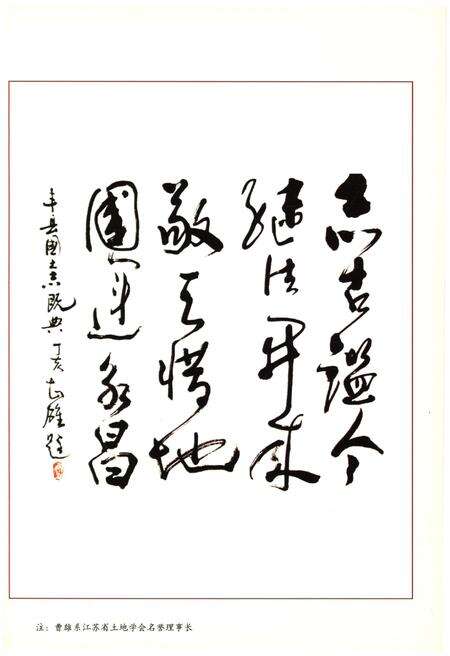 志古鉴今
继往开来
敬天惜地
国运永昌
丰县国土志既典 丁亥 曹雄题
注：曹雄系江苏省土地学会名誉理事长